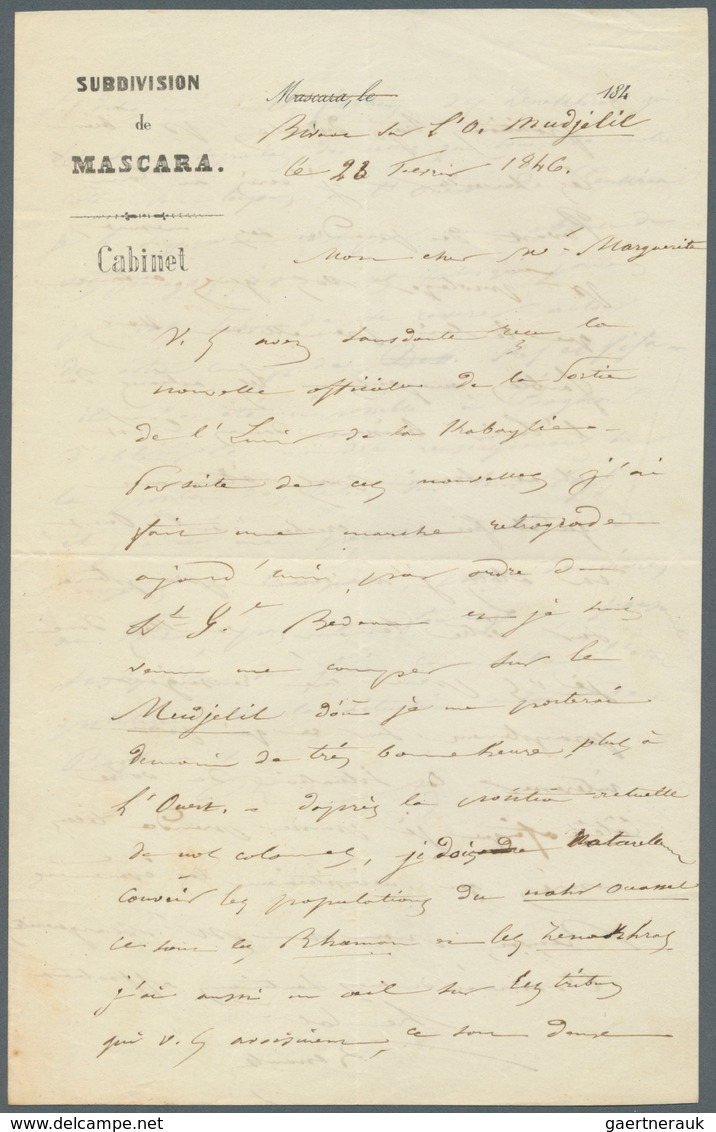 SUBDIVISION
de
MASCARA.
Cabinet
Mascara, le 184
Bivouac sur L'O. Mudjelil
le 23 Fevrier 1846.
Mon cher Mr. Marguerite
V. s avez sans doute recu la
nouvelle officielle de la Sortie
de l'Emir de la Kabaylie
Par suite de ces nouvelles j'ai
fait une marche retrograde
aujourd'hui par ordre du
Lt. Gal. Bedeau et je suis
venu me camper sur le
Mudjelil d'où je me porterai
demain de très bonne heure plus à
L'Ouest. - d'après la position actuelle
de nos colonnes, je dois naturellem
couvrir les populations du nahr ouassel
ce sont les Rhaman et les Zenakhras
j'ai aussi un oeil sur les tribus
qui v. s avoisinent, ce sont deux
gaertnerauk